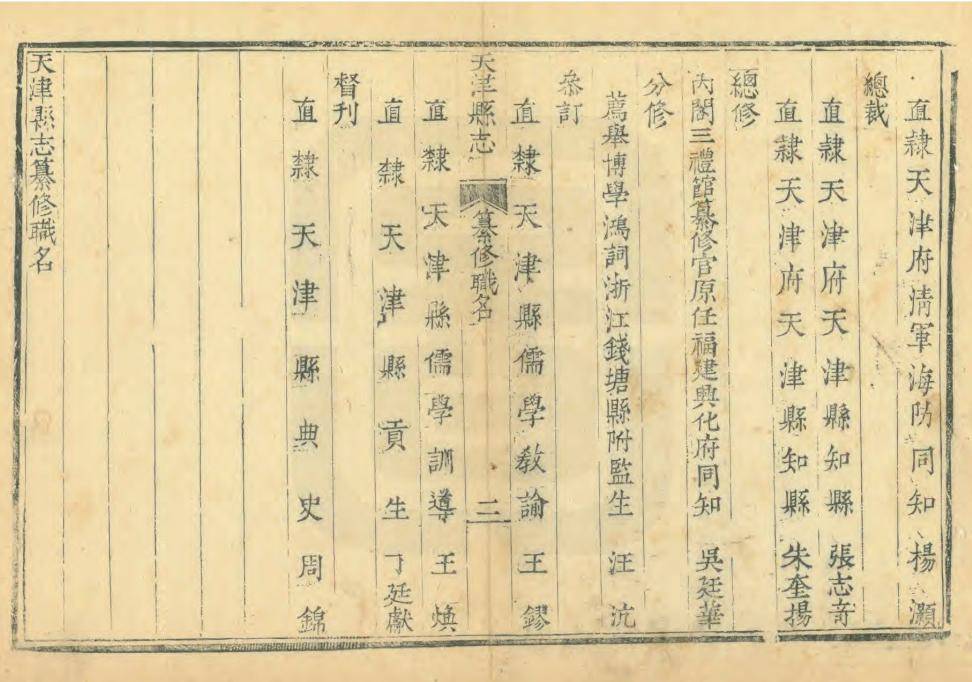 直隸天津府清軍海防同知楊灝
總裁
直隸天津府天津縣知縣張志奇
直隸天津府天津縣知縣朱奎揚
總修
內閣三禮館纂修官原任福建興化府同知吳廷華
分修
薦舉博學鴻詞浙江錢塘縣附監生汪沆
叅訂
直隸天津縣儒學教諭王鏐
天津縣志 纂修職名 二
直隸天津縣儒學訓導王煥
直隸天津縣貢生丁廷獻
督刊
直隸天津縣典史周錦
天津縣志纂修職名